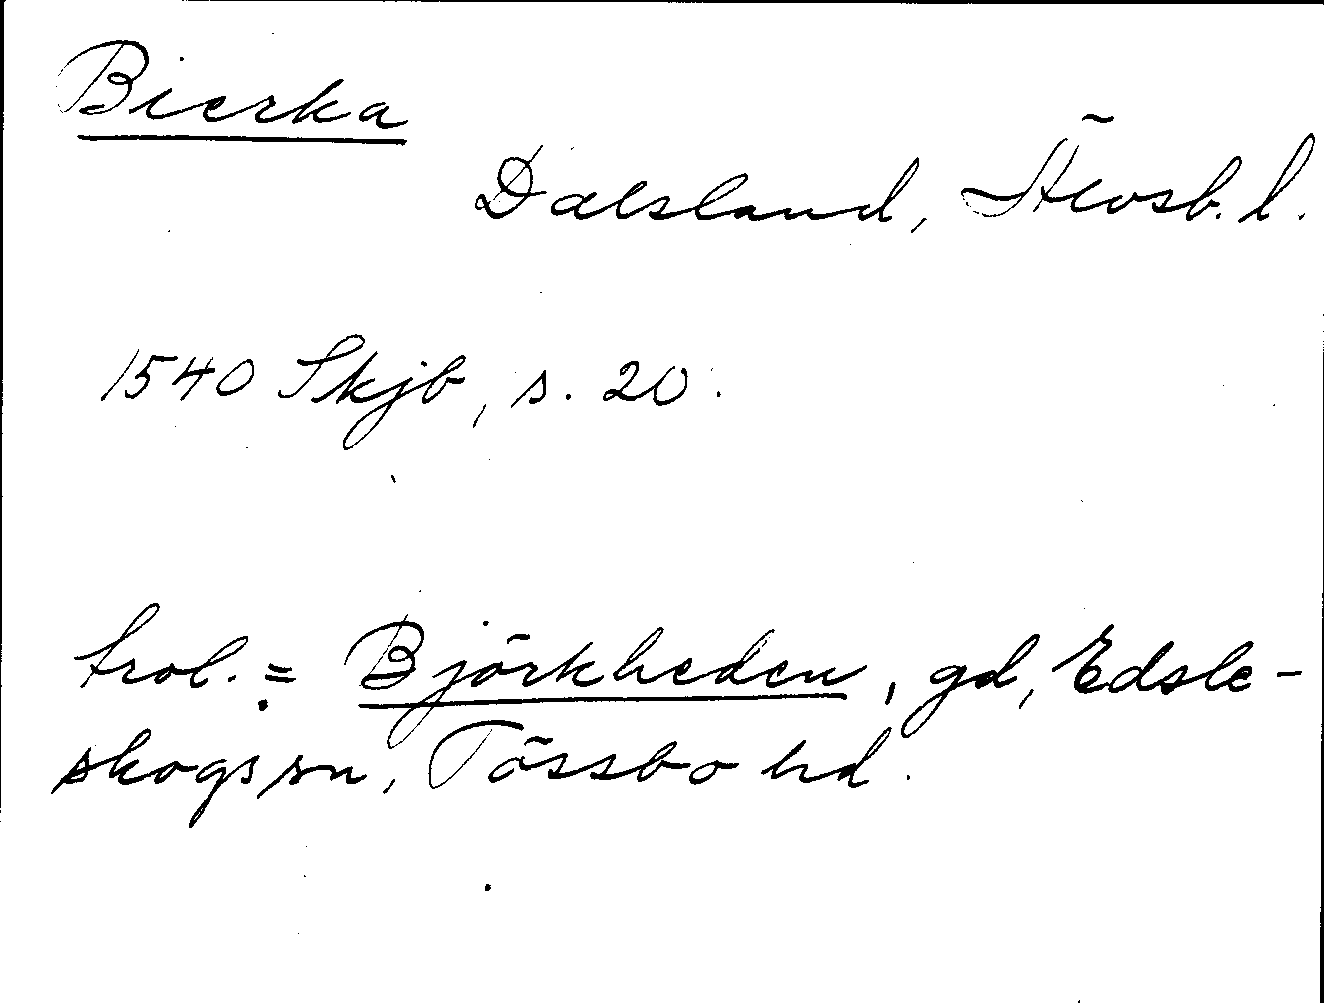 Bierka
Dalsland, Älvsb. l.
1540 Skjb, s. 20.
trol. = Björkheden, gd, Edsle-
skogs sn, Tössbo hd.